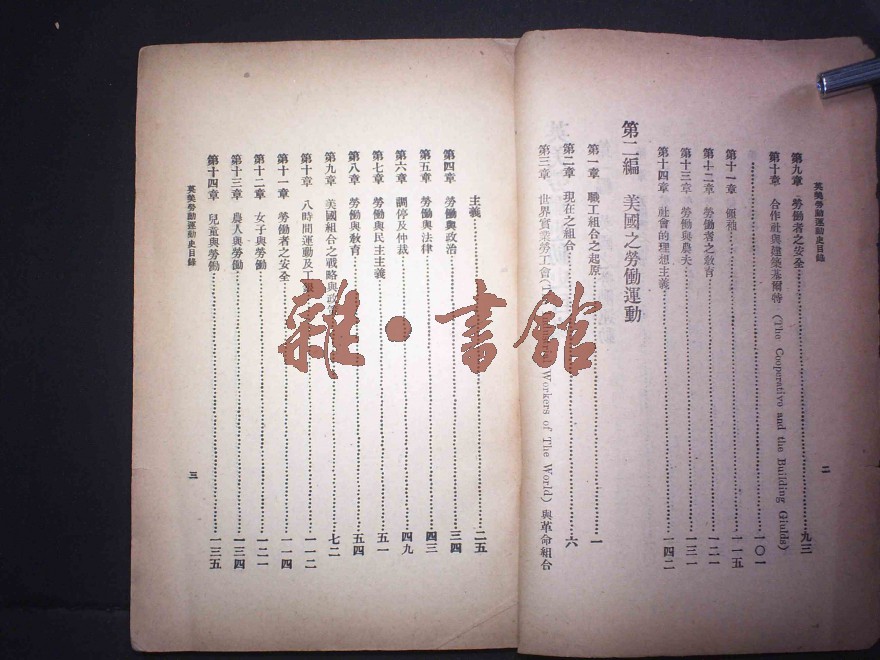 英美勞動運動史目錄
二
第九章 勞働者之安全 九三
第十章 合作社與建築基爾特 (The Cooperativo and the Building Giulds)
一〇一
第十一章 領袖 一一五
第十二章 勞働者之敎育 一二一
第十三章 勞働與農夫 一三一
第十四章 社會的理想主義 一四二
第二編 美國之勞働運動
第一章 職工組合之起原 一
第二章 現在之組合 六
第三章 世界實業勞工會 Workers of The World) 與革命組合
主義 二五
第四章 勞働與政治 三四
第五章 勞働與法律 四三
第六章 調停及仲裁 四九
第七章 勞働與民主主義 五一
第八章 勞働與敎育 五四
第九章 美國組合之戰略與政策 七二
第十章 八時間運動及工 一一二
第十一章 勞働者之安全 一一四
第十二章 女子與勞働 一二一
第十三章 農人與勞働 一三四
第十四章 兒童與勞働 一三五
英美勞動運動史目錄
三
雜·書館